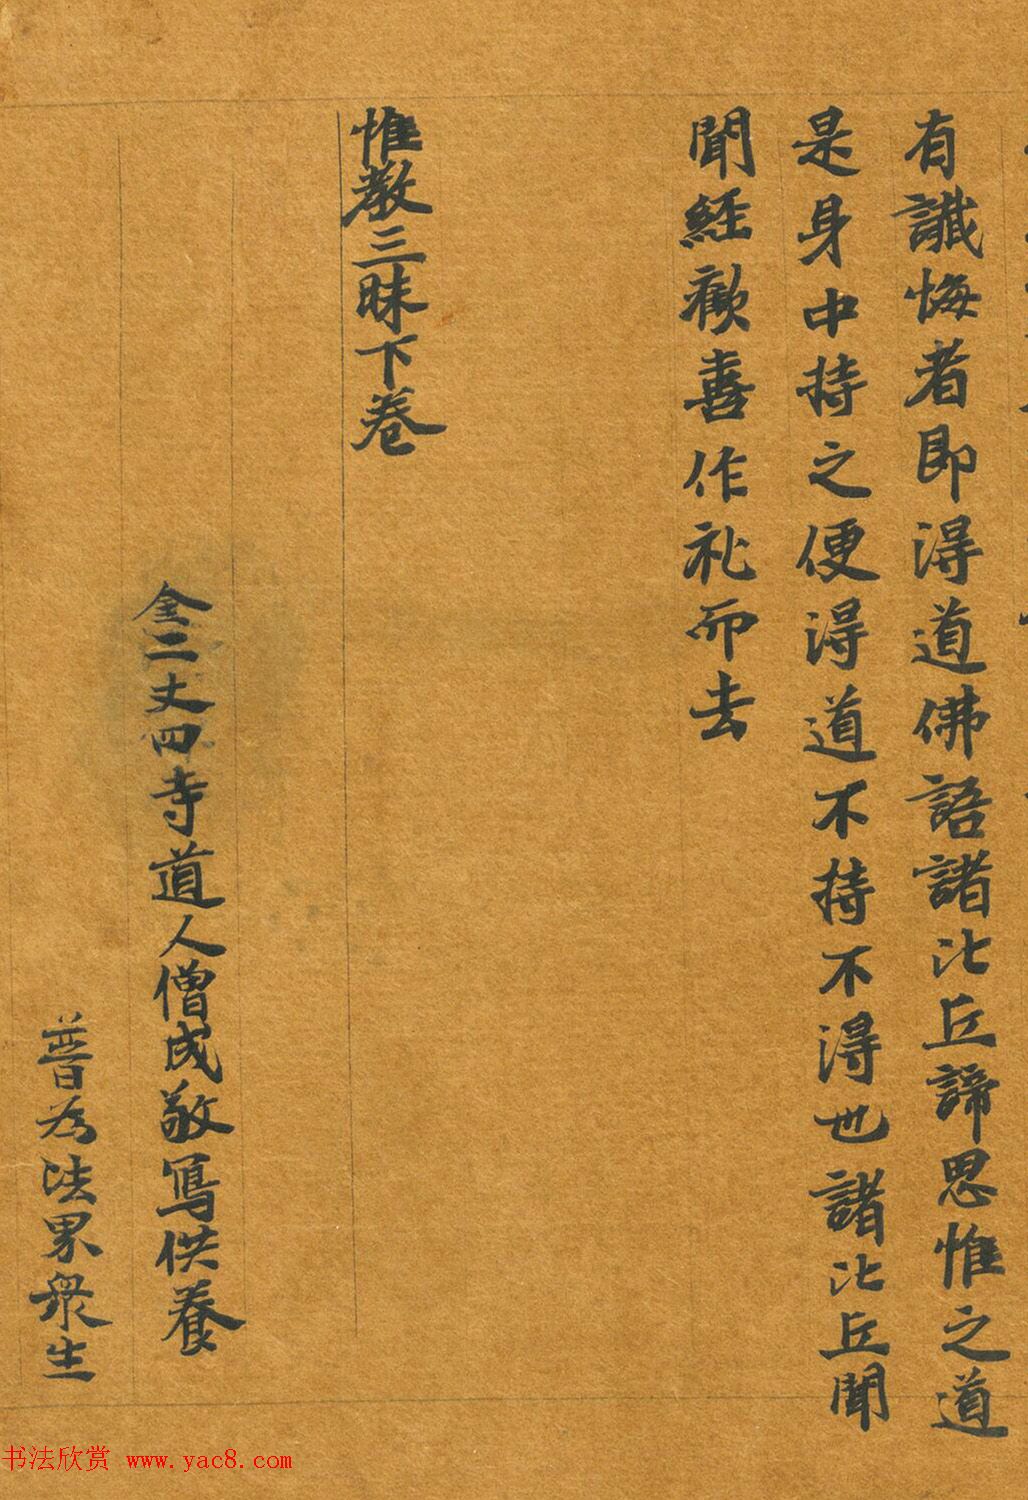 有讖悔者即得道佛語諸比丘諦思惟之道
是身中持之便得道不持不得也諸比丘聞
聞經歡喜作礼而去
惟教三昧下卷
全二丈四寺道人僧成敬寫供養
普為法界眾生
书法欣赏 www.yac8.com